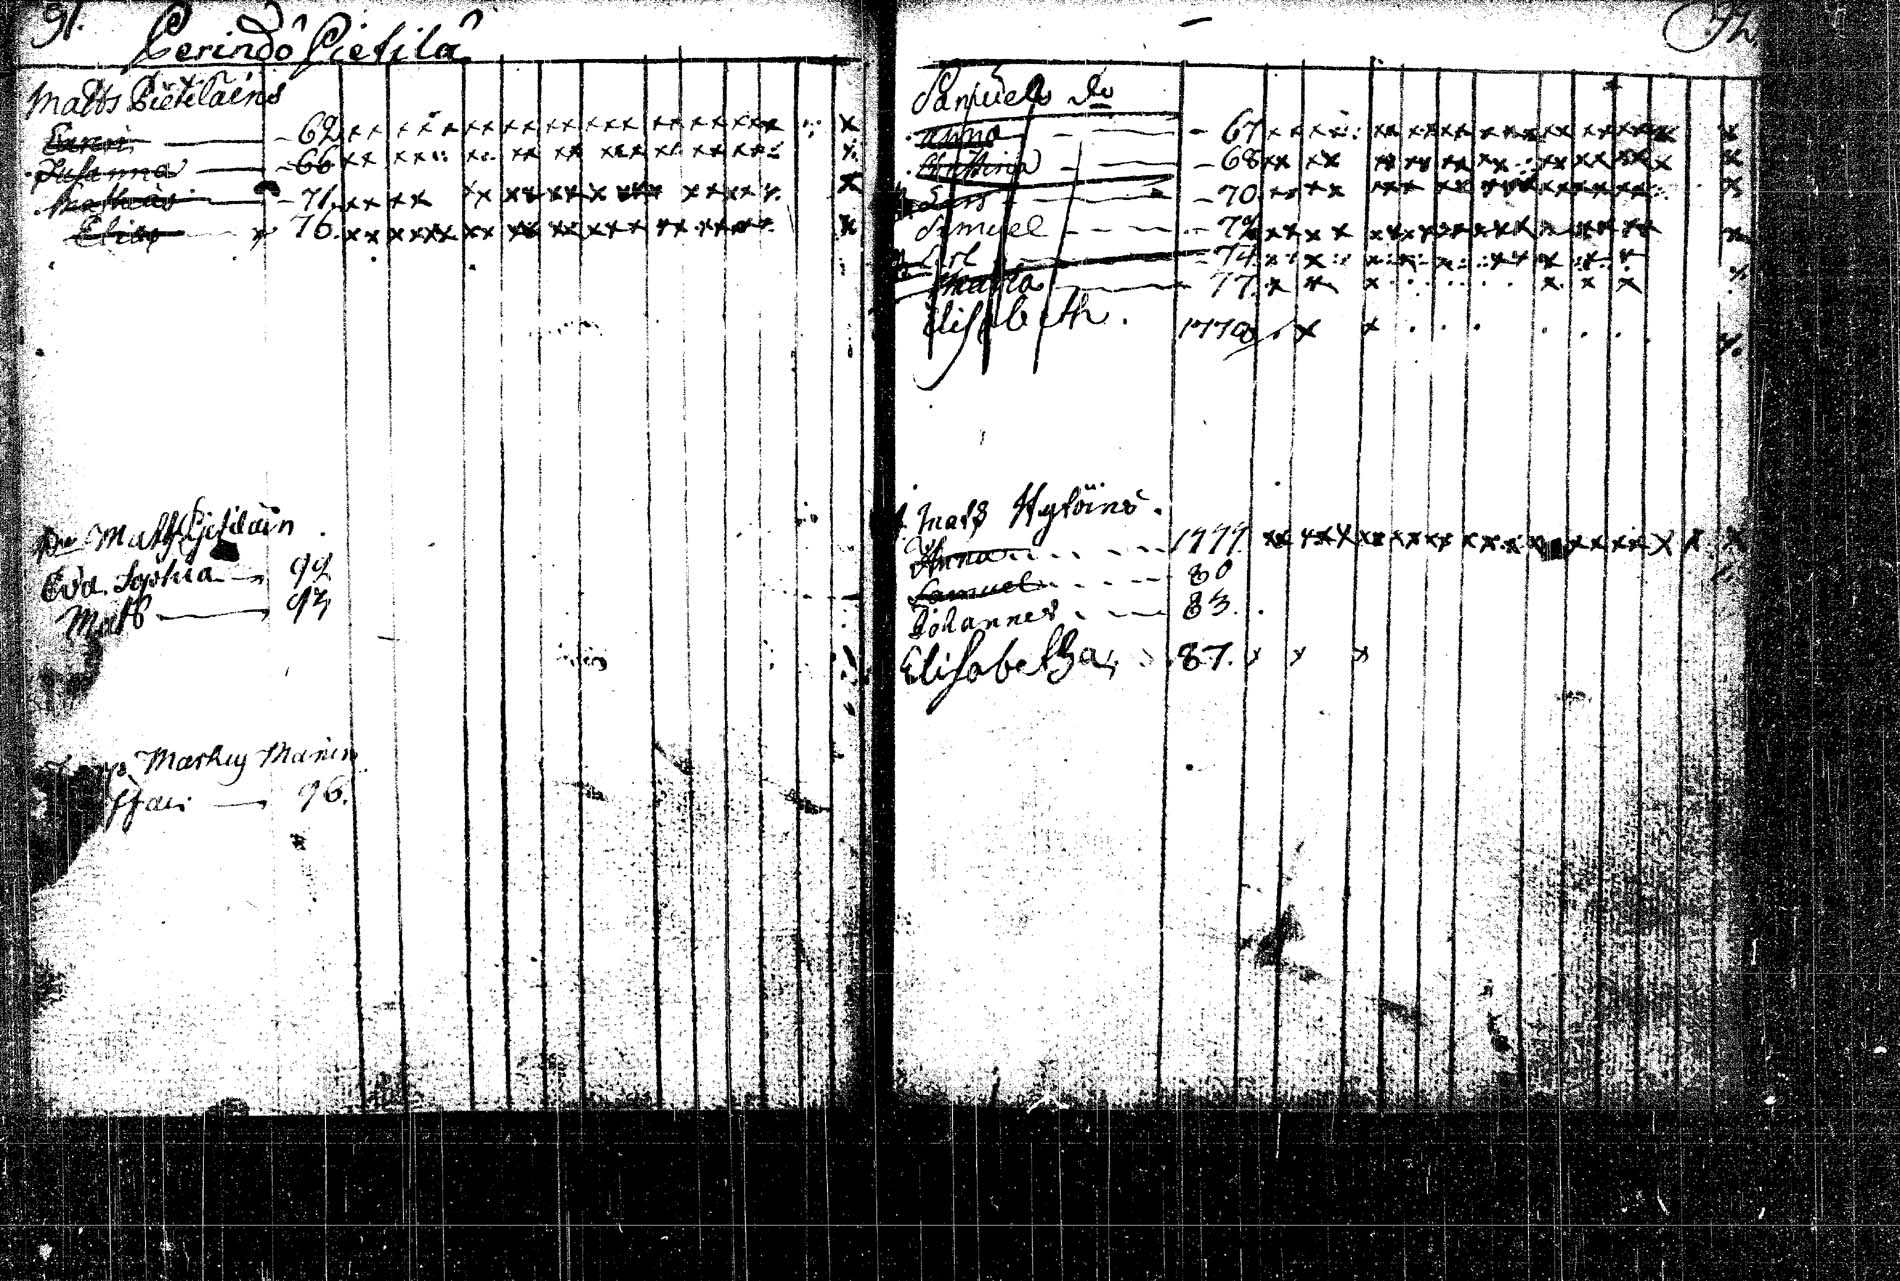 91.
Perindö Pietilä
Matts Pietiläins
Carin - 62
Susanna - 66
Mathias - 71
Elias 76.
Matts Pietiläin
Eva Sophia 92
Matts 93
Marken Manin
96.
92.
Samuels do
Anna - 67
Christina - 68
Lars - 70
Samuel - 72
Carl - 74
Maria 77
Elisabeth. 1778
Mats Hyköins.
Anna 1777
Samuel 80
Johannes 83.
Elisabetha 87.